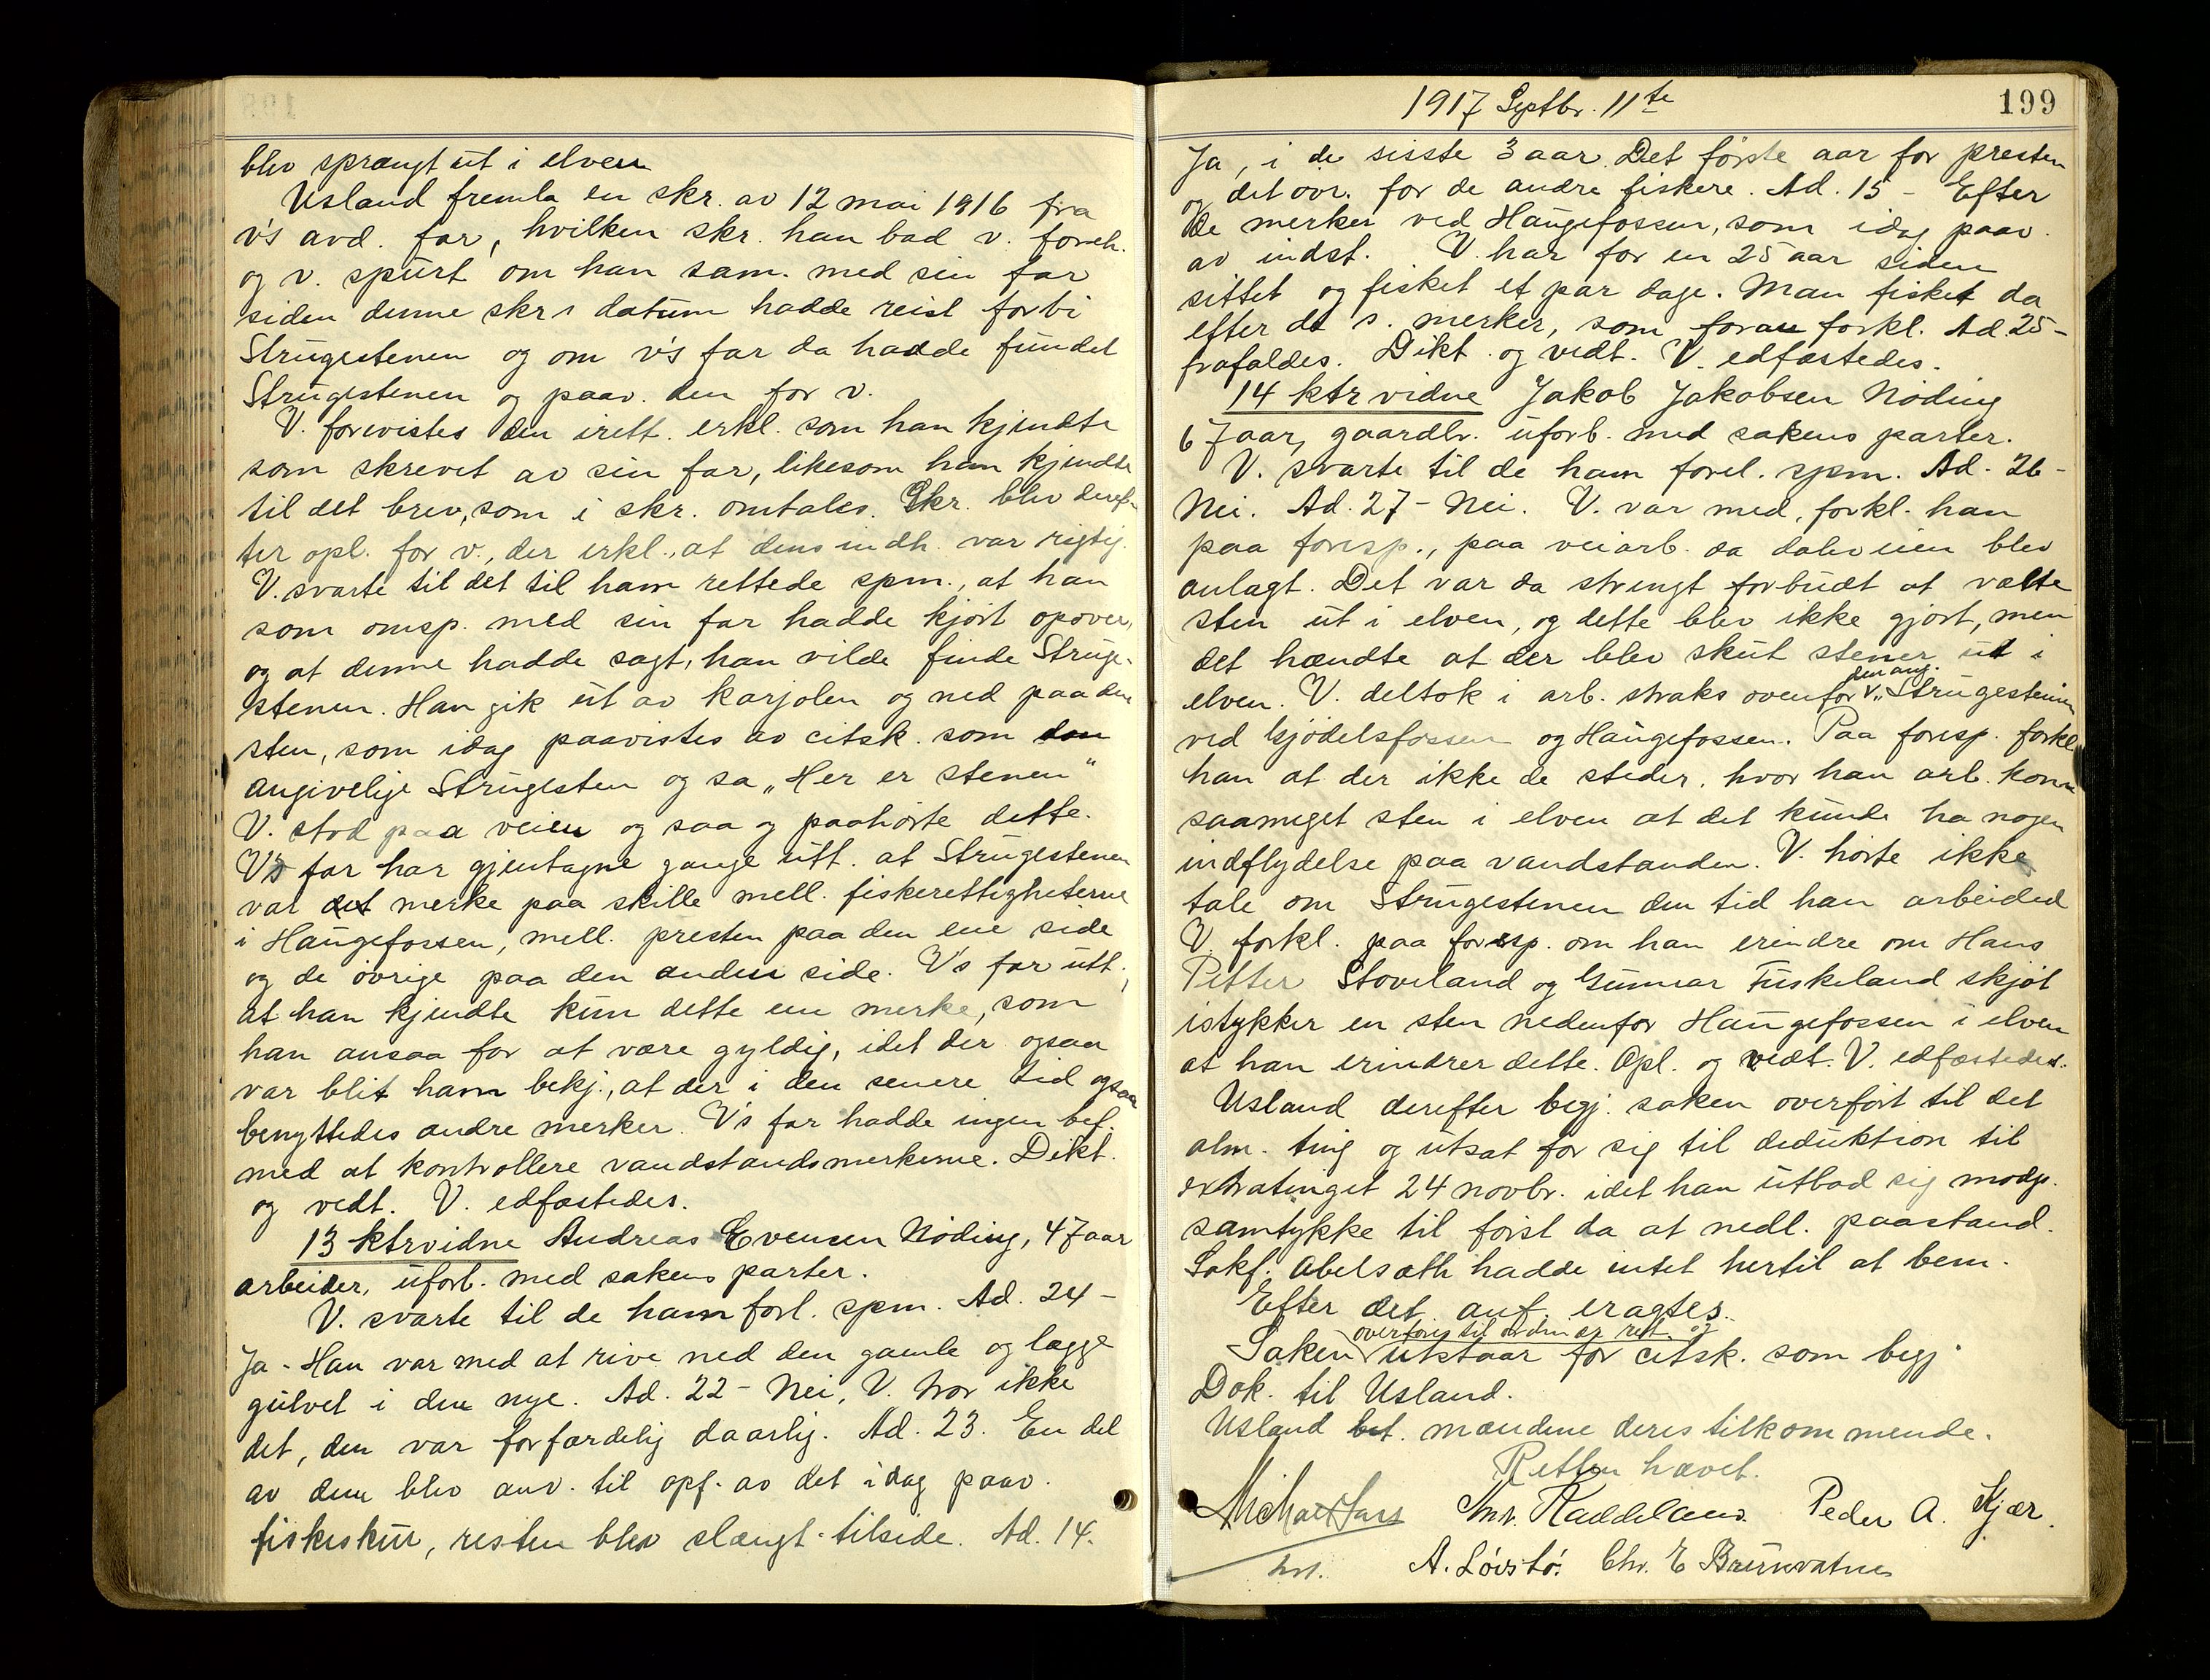 blev sprængt ut i elven
Usland fremla en skr. av 12 mai 1916 fra
v's avd. far, hvilken skr. han bad v. foreh.
og v. spurt om han sam. med sin far
siden denne skr s datum hadde reist forbi
Strugestenen og om v's far da hadde fundet
Strugestenen og paav. den for v.
V. forevistes den irett. erkl. som han kjendte
som skrevet av sin far, likesom han kjendte
til det brev, som i skr. omtales. Skr. blev deref-
ter opl. for v., der erkl., at dens indh. var rigtig.
V. svarte til det til ham rettede spm., at han
som omsp. med sin far hadde kjørt opover,
og at denne hadde sagt, han vilde finde Struge-
stenen. Han gik ut av karjolen og ned paa den
sten, som idag paavistes av citsk. som den
angivelige Strugesten og sa „Her er stenen"
V. stod paa veien og saa og paahørte dette.
V's far har gjentagne gange utt. at Strugestenen
var det merke paa skille mell. fiskerettigheterne
i Haugefossen, mell. presten paa den ene side
og de övrige paa den anden side. V's far utt.,
at han kjendte kun dette ene merke, som
han ansaa for at være gyldig, idet der ogsaa
var blit ham bekj., at der i den senere tid ogsaa
benyttedes andre merker. V's far hadde ingen bef.
med at kontrollere vandstandsmerkerne. Dikt.
og vedt. V. edfæstedes.
13 ktrvidne Andreas Evensen Nöding, 47 aar
arbeider, uforb. med sakens parter.
V. svarte til de ham forl. spm. Ad. 24 -
Ja - Han var med at rive ned den gamle og lægge
gulvet i den nye. Ad. 22 - Nei, V. tror ikke
det, den var forfærdelig daarlig. Ad. 23. En del
av den blev anv. til opf. av det idag paav.
fiskeskur, resten blev slængt tilside. Ad. 14.
1917 Septbr. 11te
199
Ja, i de sisste 3 aar. Det første aar for presten
og det övr. for de andre fiskere. Ad. 15 - Efter
de merker ved Haugefossen, som idag paav.
av indst. V. har for en 25 aar siden
sittet og fisket et par dage. Man fisket da
efter de s. merker, som foran forkl. Ad. 25 -
frafaldes. Dikt. og vedt. V. edfæstedes.
14 ktrvidne Jakob Jakobsen Nöding
67 aar, gaardbr. uforb. med sakens parter.
V. svarte til de ham forel. spm. Ad. 26 -
Nei. Ad. 27 - Nei. V. var med, forkl. han
paa foresp., paa veiarb. da dalveien blev
anlagt. Det var da strengt forbudt at vælte
sten ut i elven, og dette blev ikke gjort, men
det hændte at der blev skut stener ut i
den ang.
elven. V. deltok i arb. straks ovenfor v „Strugestenen
ved Gjödelsfossen og Haugefossen. Paa foresp. forkl.
han at der ikke de steder, hvor han arb. kom
saameget sten i elven at det kunde ha nogen
indflydelse paa vandstanden. V. hørte ikke
tale om Strugestenen den tid han arbeided
V. forkl. paa foresp. om han erindre om Hans
Petter Stoveland og Gunnar Fuskeland skjøt
istykker en sten nedenfor Haugefossen i elven
at han erindrer dette. Opl. og vedt. V. edfæstedes.
Usland derefter begj. saken overført til det
alm. ting og utsat for sig til deduktion til
extratinget 24 novbr. idet han utbad sig modp.
samtykke til først da at nedl. paastand.
Sakf. Abelsæth hadde intet hertil at bem.
Efter det anf. eragtes
overføres til ordinær ret og
Saken v utstaar for citsk. som begj
Dok. til Usland.
Usland bet. mændene deres tilkommende.
Retten hævet.
Ant. Raddeland. Peder A. Kjær.
A. Løvstö. Chr. E Brunvatne